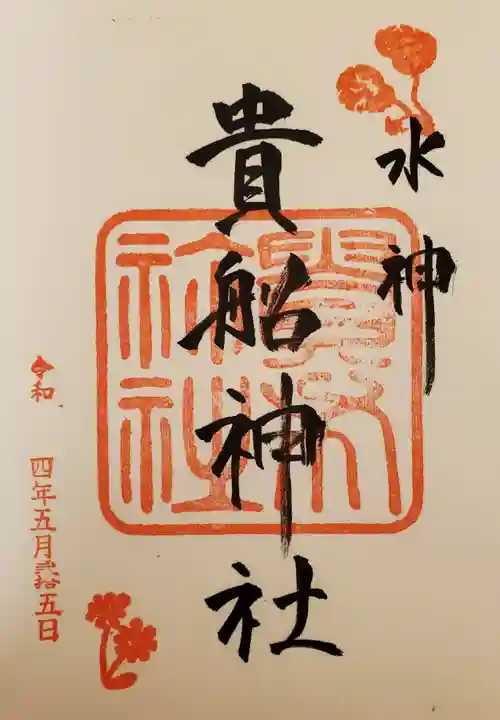 水神
貴船神社
令和 四年五月弐拾五日